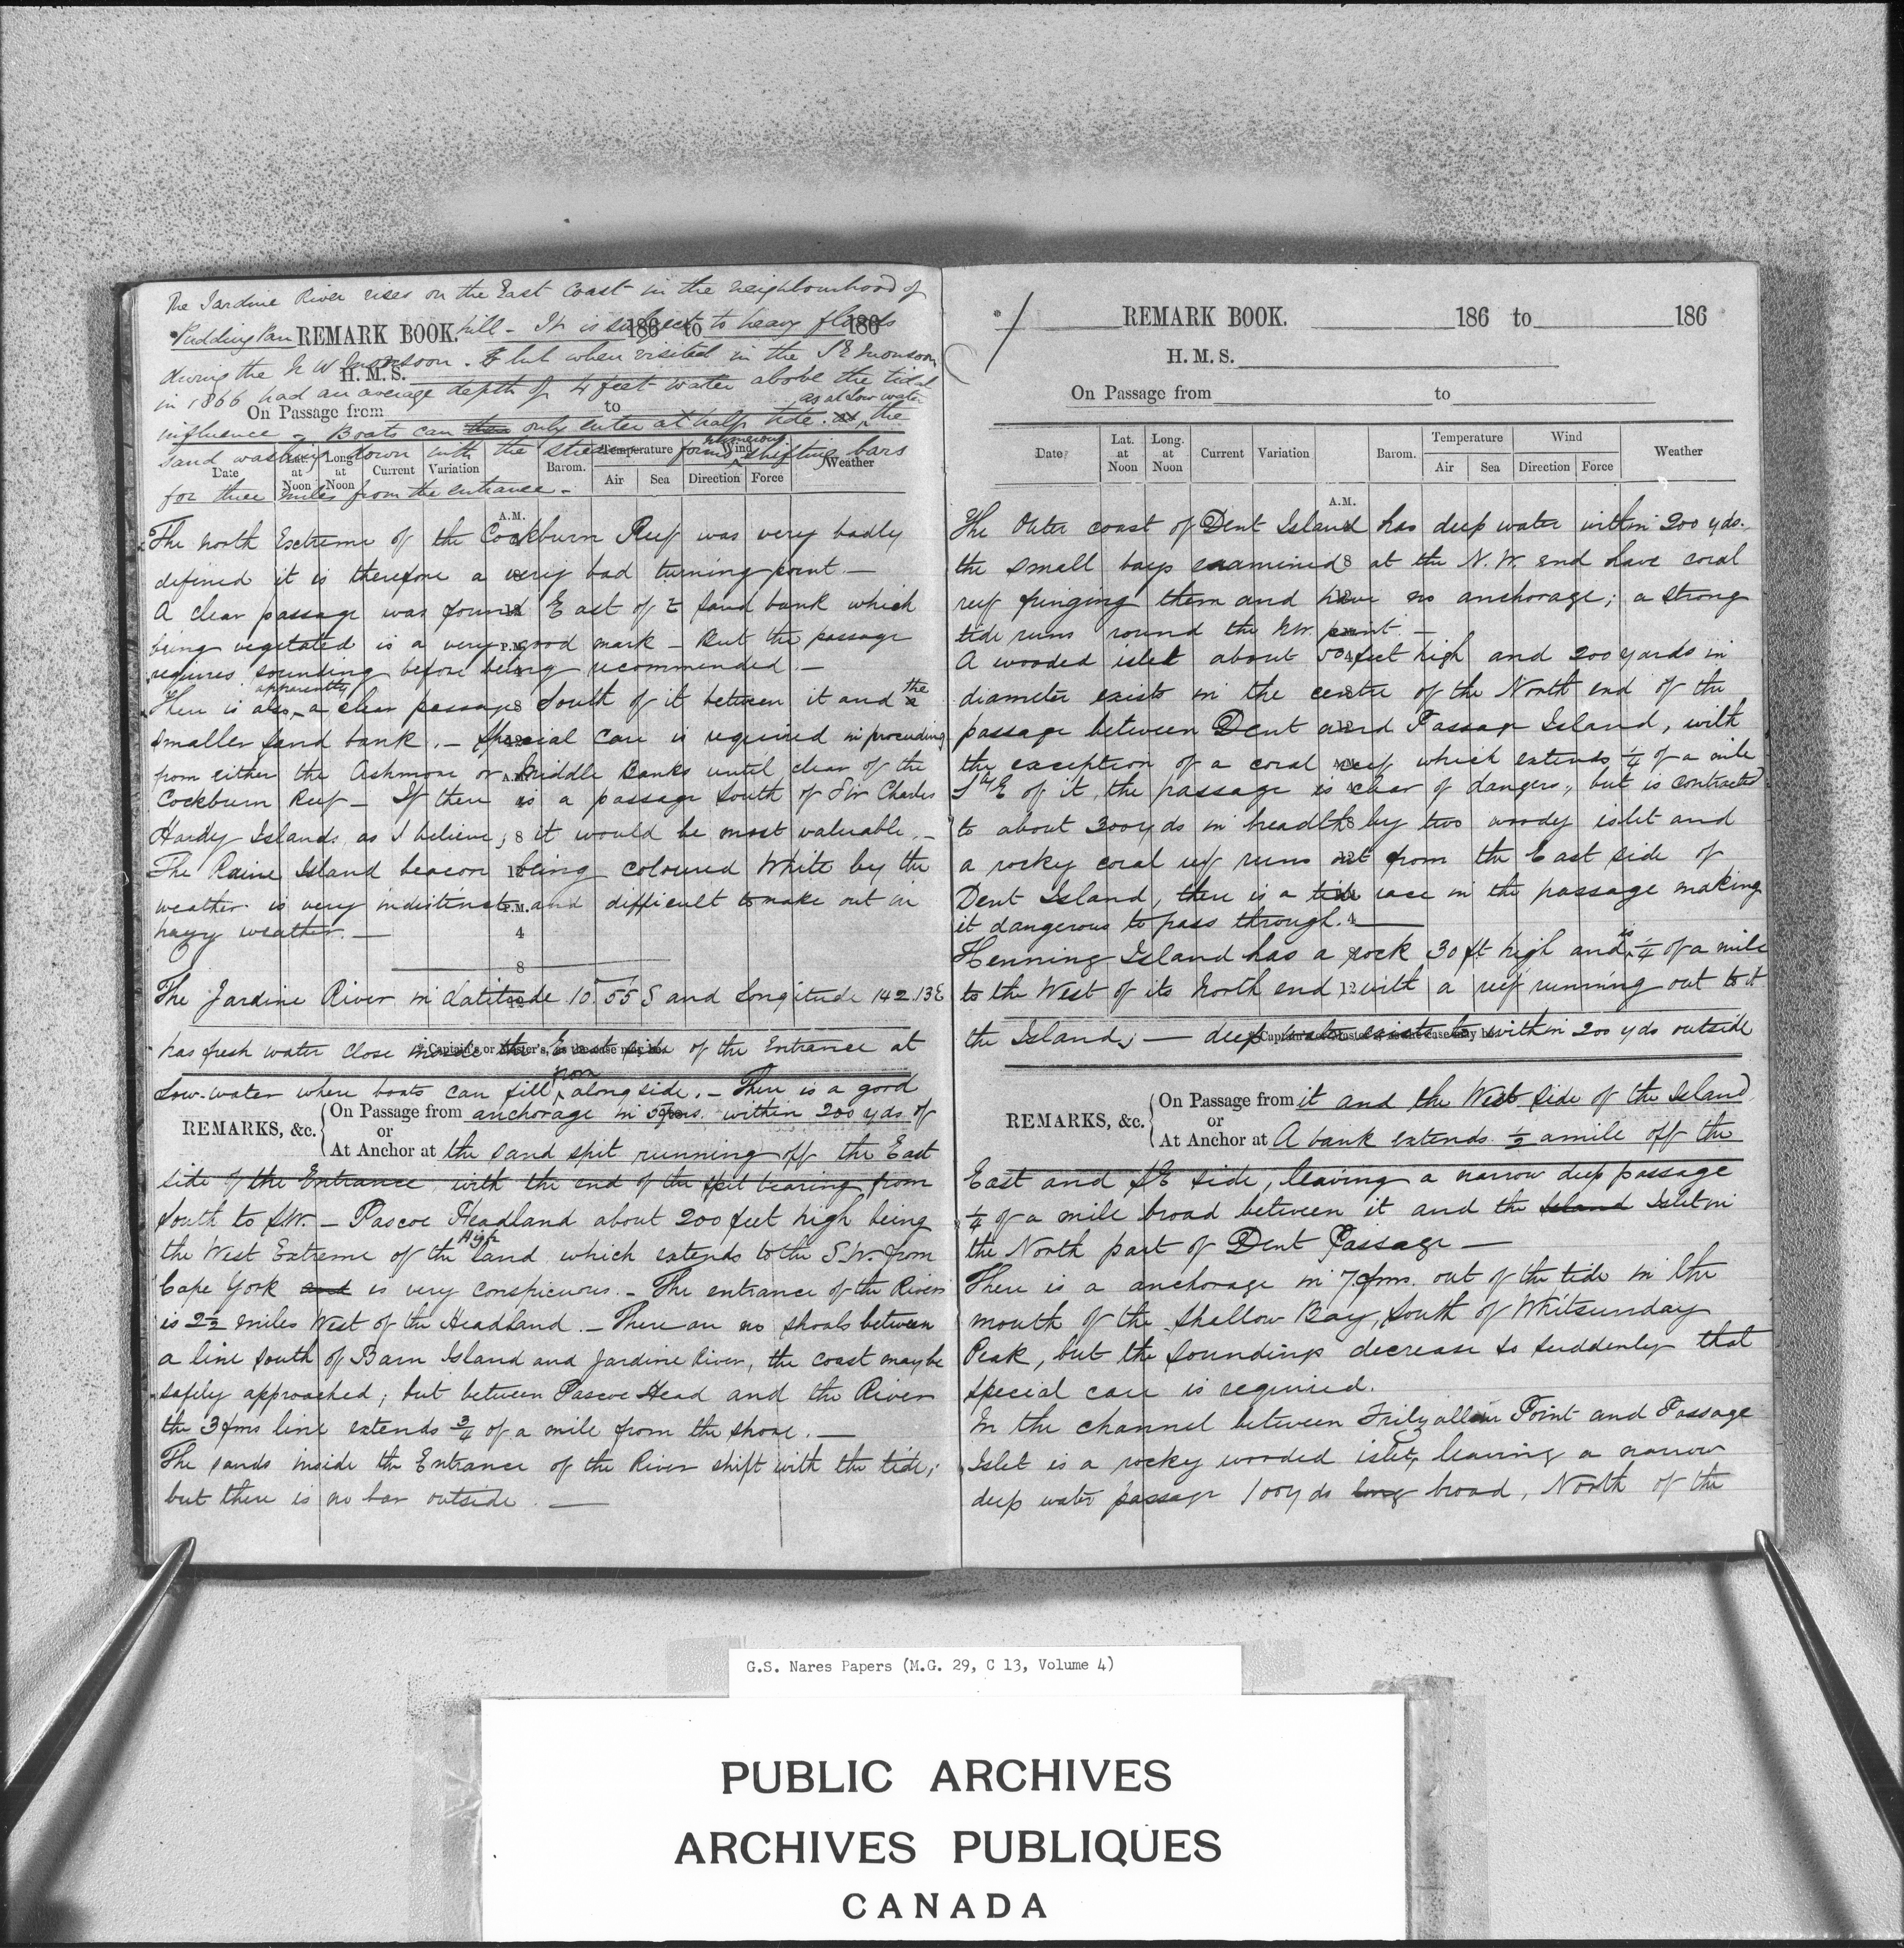 The Jardine River rises on the East Coast in the neighbourhood of
Pudding Pan hill - It is subject to heavy floods
REMARK BOOK. 186 to 186
during the N W monsoon. but when visited in the S E monsoon
H. M. S.
in 1866 had an average depth of 4 feet water above the tidal
On Passage from to
as at low water
influence - Boats can then only enter at half tide. as the
numerous
sand washing down with the stream forms shifting bars
Date Lat. at Noon Long. at Noon Current Variation Barom. Temperature Air Sea Wind Direction Force Weather
for three miles from the entrance -
A.M.
The north Extreme of the Cockburn Reef was very badly
defined it is therefore a very bad turning point. —
A clear passage was found East of sand bank which
being vegetated is a very good mark - But the passage
requires sounding before being recommended. —
apparently the
There is also a clear passage South of it between it and a
smaller sand bank. - Special care is required in proceeding
from either the Ashmore or Middle Banks until clear of the
Cockburn Reef - If there is a passage South of Sir Charles
Hardy Islands as I believe, 8 it would be most valuable. -
The Raine Island beacon being coloured White by the
weather is very indistinct and difficult to make out in
hazy weather. —
4
8
The Jardine River in Latitude 10.55 S and Longitude 142.13 E
has fresh water close inside the East side of the Entrance at
* Captain's or Master's, as the case may be.
from
low-water where boats can fill alongside. - There is a good
REMARKS, &c. On Passage from anchorage in 5 fms. within 200 yds. of
or
At Anchor at the sand spit running off the East
side of the Entrance with the end of the spit bearing from
South to SW. - Pascoe Headland about 200 feet high being
High
the West Extreme of the land which extends to the S.W. from
Cape York and is very conspicuous. - The entrance of the River
is 2½ miles West of the Headland. - There are no shoals between
a line South of Barn Island and Jardine River, the coast may be
safely approached; but between Pascoe Head and the River
the 3 fms line extends ¾ of a mile from the shore. —
The sands inside the Entrance of the River shift with the tide;
but there is no bar outside. —
* REMARK BOOK. 186 to 186
H. M. S.
On Passage from to
Date Lat. at Noon Long. at Noon Current Variation Barom. Temperature Air Sea Wind Direction Force Weather
A.M.
The Outer coast of Dent Island has deep water within 200 yds.
the small bays examined 8 at the N.W. end have coral
reef fringing them and have no anchorage; a strong
tide runs round the NW. point. —
A wooded islet about 50 feet high and 200 yards in
diameter exists in the centre of the North end of the
passage between Dent and Passage Island, with
the exception of a coral reef which extends ¼ of a mile
Sth E of it, the passage is clear of dangers, but is contracted
to about 300 yds in breadth by two woody islet and
a rocky coral reef runs out from the East side of
Dent Island, there is a tide race in the passage making
it dangerous to pass through. 4 —
is
Henning Island has a rock 30 ft high and ¼ of a mile
to the West of its North end 12 with a reef running out to it
the Island; — deep water exists to within 200 yds outside
* Captain's or Master's, as the case may be.
REMARKS, &c. On Passage from it and the West side of the Island
or
At Anchor at A bank extends ½ a mile off the
East and SE side, leaving a narrow deep passage
¼ of a mile broad between it and the Island Islet in
the North part of Dent Passage —
There is a anchorage in 7 fms. out of the tide in the
mouth of the shallow Bay, South of Whitsunday
Peak, but the soundings decrease so suddenly that
special care is required.
In the channel between Point and Passage
Islet is a rocky wooded islet, leaving a narrow
deep water passage 100 yds long broad, North of the
G.S. Nares Papers (M.G. 29, C 13, Volume 4)
PUBLIC ARCHIVES
ARCHIVES PUBLIQUES
CANADA